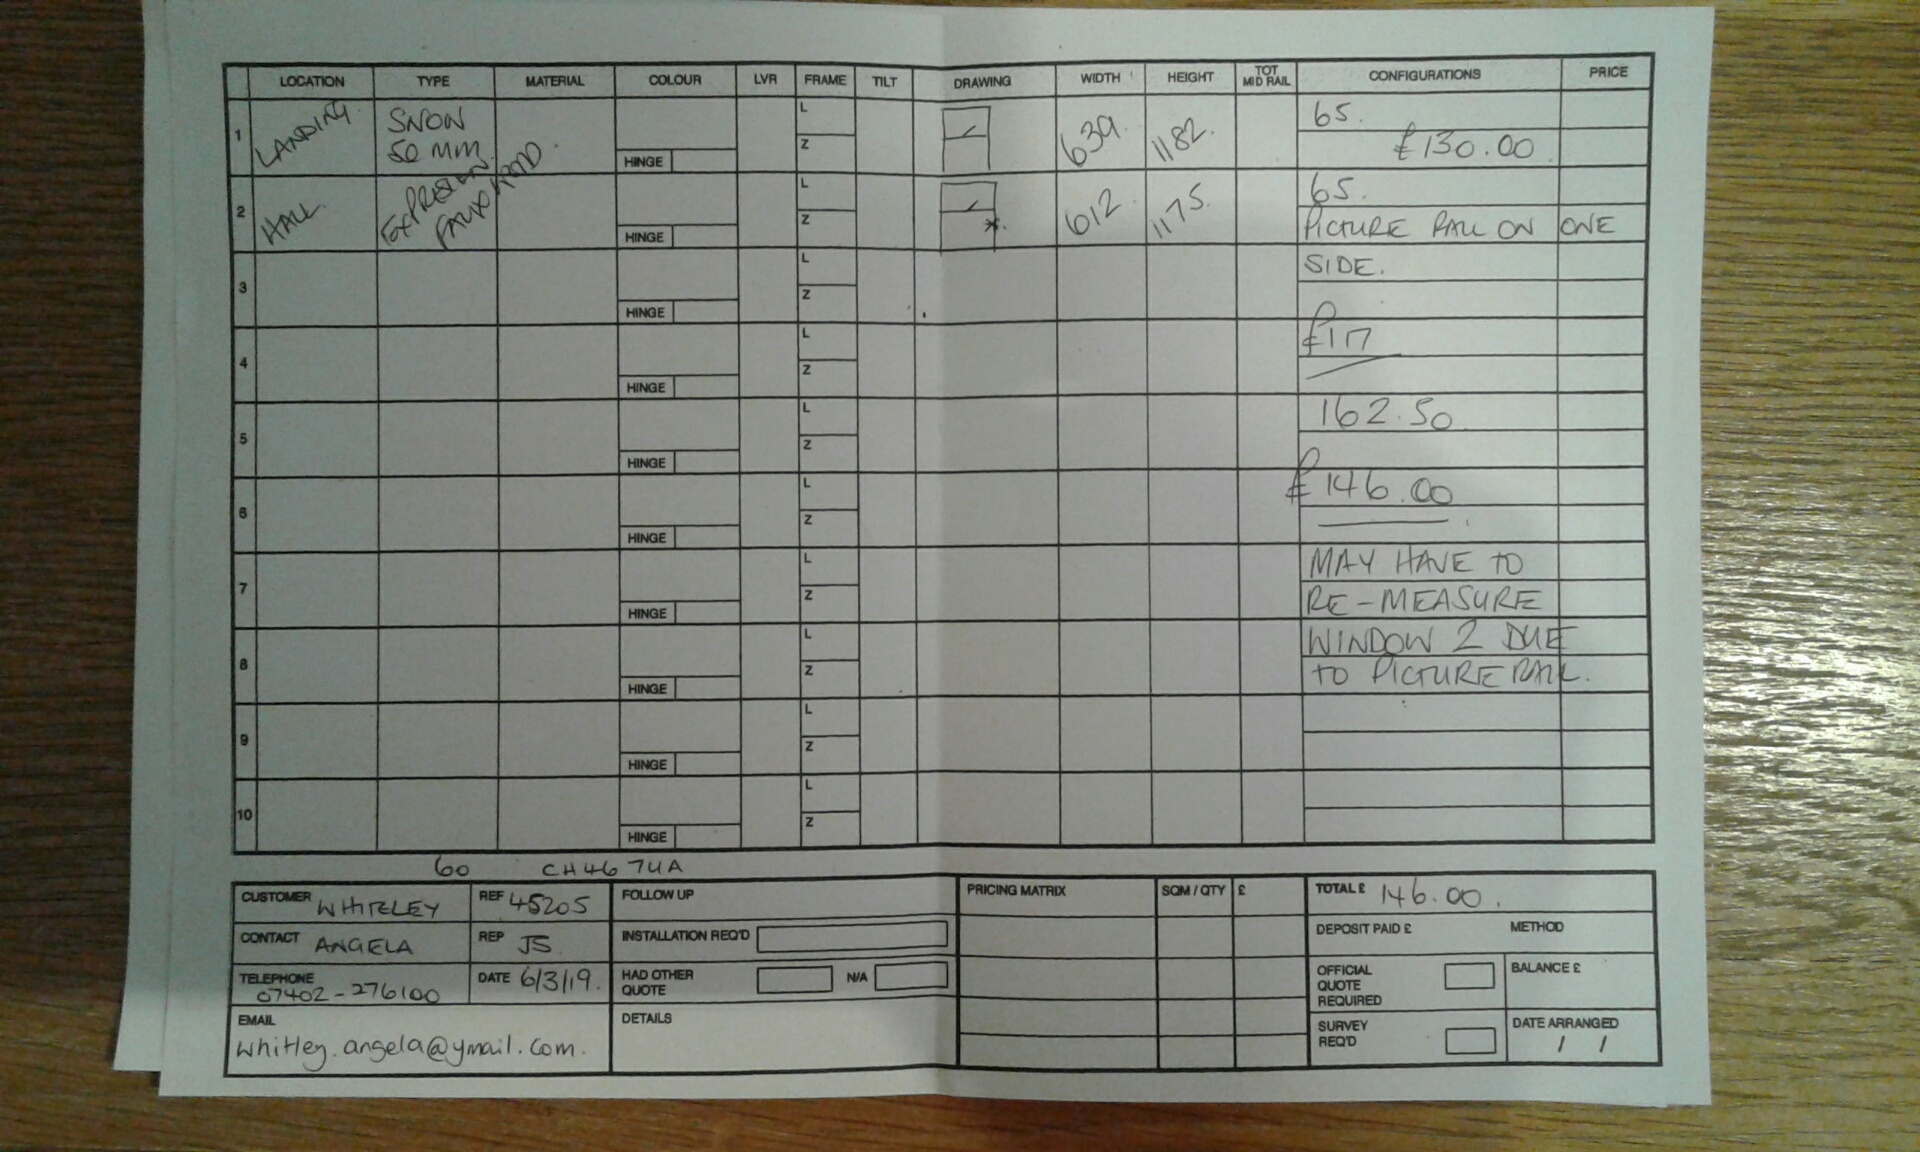 LOCATION TYPE MATERIAL COLOUR LVR FRAME TILT DRAWING WIDTH HEIGHT TOT MID RAIL CONFIGURATIONS PRICE
1 LANDING SNOW 50 MM L Z HINGE 639. 1182. 65.
£130.00
2 HALL FAUX WOOD L Z HINGE * 612. 1175. 65.
PICTURE RAIL ON ONE
3 L Z HINGE SIDE.
4 L Z HINGE £117
5 L Z HINGE 162.50
6 L Z HINGE £146.00
7 L Z HINGE MAY HAVE TO
RE-MEASURE
8 L Z HINGE WINDOW 2 DUE
TO PICTURE RAIL.
9 L Z HINGE
10 L Z HINGE
60 CH46 7UA
CUSTOMER WHITELEY REF 45205
CONTACT ANGELA REP JS
TELEPHONE 07402-276100 DATE 6/3/19.
EMAIL
whitley.angela@ymail.com.
FOLLOW UP
INSTALLATION REQ'D
HAD OTHER QUOTE N/A
DETAILS
PRICING MATRIX SQM / QTY £
TOTAL £ 146.00.
DEPOSIT PAID £ METHOD
OFFICIAL QUOTE REQUIRED BALANCE £
SURVEY REQ'D DATE ARRANGED
/ /